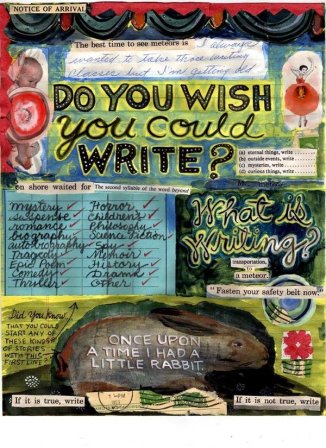 NOTICE OF ARRIVAL
The best time to see meteors is I always
wanted to take those writing
classes but I'm getting old
DO YOU WISH
you could
WRITE?
(a) eternal things, write
(b) outside events, write
(c) mysteries, write
(d) curious things, write
on shore waited for The second syllable of the word beyond
mystery ✓ Horror ✓
suspense ✓ children's ✓
romance ✓ Philosophy ✓
biography ✓ Science Fiction ✓
autobiography ✓ Spy ✓
Tragedy ✓ Memoir ✓
Epic Poem ✓ History ✓
Comedy ✓ Drama ✓
Thriller ✓ Other ✓
What is
Writing?
transportation,
to
a meteor.
"Fasten your safety belt now."
Did You Know
THAT YOU COULD
START ANY OF
THESE KINDS
OF STORIES
WITH THIS
FIRST LINE?
ONCE UPON
A TIME I HAD A
LITTLE RABBIT.
If it is true, write
If it is not true, write